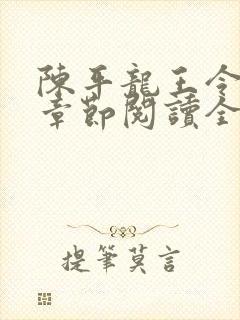 陳平龍王令
章節閱讀全
提筆莫言